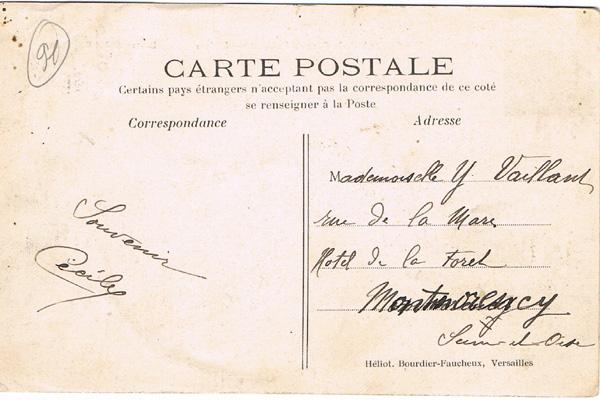 91
CARTE POSTALE
Certains pays étrangers n'acceptant pas la correspondance de ce coté
se renseigner à la Poste
Correspondance
Adresse
Souvenir
Cécile
Mademoiselle Y Vaillant
rue de la Mare
Hotel de la Foret
Seine et Oise
Héliot. Bourdier-Faucheux, Versailles